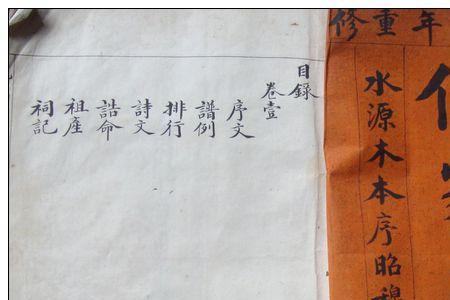 年重修
水源木本序昭穆
目錄
卷壹
序文
譜例
排行
詩文
誥命
祖產
祠記